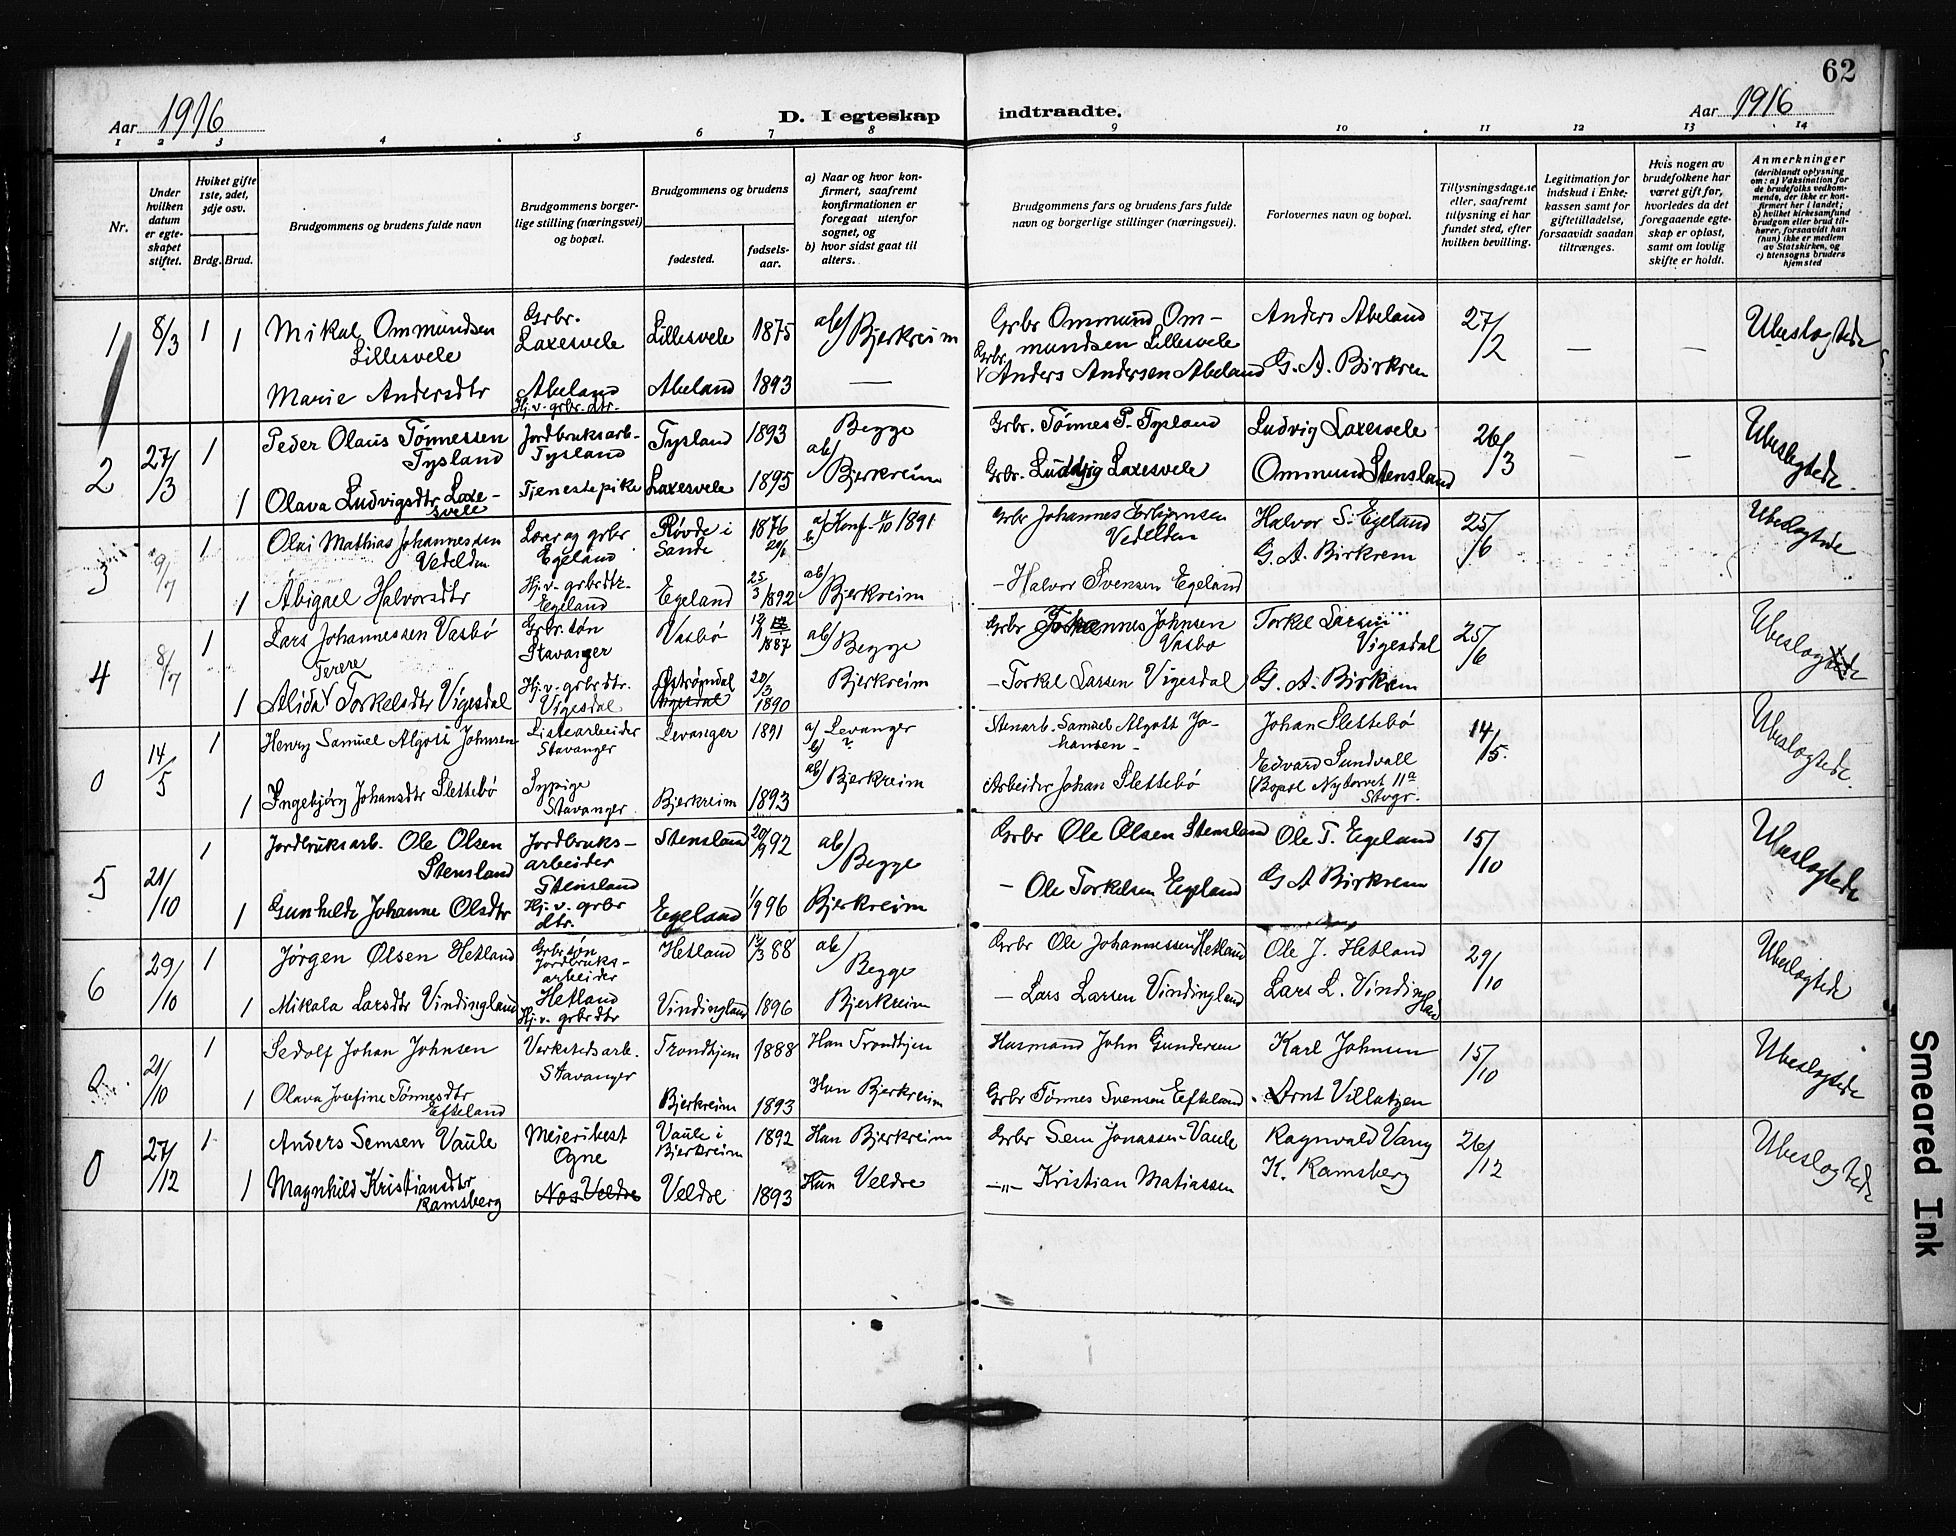 62
Aar 1916
D. I egteskap indtraadte.
Aar 1916
1 2 3 4 5 6 7 8 9 10 11 12 13 14
Nr.
Under hvilken datum er egteskapet stiftet.
Hviket gifte 1ste, 2det, 3dje osv.
Brdg. Brud.
Brudgommens og brudens fulde navn
Brudgommens borgerlige stilling (næringsvei) og bopæl.
Brudgommens og brudens
fødested.
fødselsaar.
a) Naar og hvor konfirmert, saafremt konfirmationen er foregaat utenfor sognet, og
b) hvor sidst gaat til alters.
Brudgommens fars og brudens fars fulde navn og borgerlige stillinger (næringsvei).
Forlovernes navn og bopæl.
Tillysningsdagene eller, saafremt tillysning ei har fundet sted, efter hvilken bevilling.
Legitimation for indskud i Enkekassen samt for giftetilladelse, forsaavidt saadan tiltrænges.
Hvis nogen av brudefolkene har været gift før, hvorledes da det foregaaende egteskap er opløst, samt om lovlig skifte er holdt.
Anmerkninger (deriblandt oplysning om: a) Vaksination for de brudefolks vedkommende, der ikke er konfirmert her i landet; b) hvilket kirkesamfund brudgom eller brud tilhører, forsaavidt han (hun) ikke er medlem av Statskirken, og c) utensogns bruders hjemsted
1 8/3 1 Mikal Ommundsen Lillesvele Grbr. Laxesvele Lillesvele 1875 ab/ Bjerkreim Grbr Ommund Ommundsen Lillesvele Anders Abeland 27/2 — — Ubeslogtede
1 Marie Andersdtr Abeland Hj. v. grbr. dtr. Abeland 1893 — Grbr. Anders Andersen Abeland G. A. Birkrem
2 27/3 1 Peder Olaus Tønnessen Tysland Jordbruksarb. Tysland Tysland 1893 Begge ab/ Bjerkreim Grbr. Tønnes P. Tysland Ludvig Laxesvele 26/3 — — Ubeslogtede.
1 Olava Ludvigsdtr Laxesvele Tjenestepike Laxesvele 1895 Grbr. Ludvig Laxesvele Ommund Stensland
3 9/7 1 Olai Mathias Johannessen Vedelden Lærer og grbr Egeland Røvde i Sande 1876 20/1 a/ b/ Konf. 11/10 1891 Grbr Johannes Torbjørnsen Vedelden Halvor S. Egeland 25/6 Ubeslogtede
1 Abigael Halvorsdtr Hj. v. grbrdtr. Egeland Egeland 25/3 1892 ab/ Bjerkreim — Halvor Svensen Egeland G. A. Birkrem
4 8/7 1 Lars Johannessen Vasbø Grbr. søn Stavanger Vasbø 1887 ab/ Begge Grbr Johannes Johnsen Vasbø Torkel Larsen Vigesdal 25/6 Ubeslogtede
1 Alida Terere Torkelsdtr Vigesdal Hj. v. grbrdtr. Vigesdal Østrømdal Vigesdal 20/3 1890 Bjerkreim — Torkel Larsen Vigesdal G. A. Birkrem
0 14/5 1 Henry Samuel Algott Johnsen Listearbeider Stavanger Levanger 1891 a/ Levanger b/ ? Stenarb. Samuel Algott Johansen — Johan Slettebø 14/5. Ubeslogtede.
1 Ingebjørg Johansdtr Slettebø Sypige Stavanger Bjerkreim 1893 ab/ Bjerkreim Arbeider Johan Slettebø Edvard Sundvall (Bopæl Nytorvet 11a Stvgr.
5 21/10 1 Jordbruksarb. Ole Olsen Stensland Jordbruksarbeider Stensland Stensland 20/9 92 ab/ Begge Grbr Ole Olsen Stensland Ole T. Egeland 15/10 Ubeslogtede
1 Gunhilde Johanne Olsdtr Hj. v. grbr dtr. Egeland 1/9 96 Bjerkreim — Ole Torkelsen Egeland G A Birkrem
6 29/10 1 Jørgen Olsen Hetland Grbrsøn Jordbruksarbeider Hetland Hetland 12/3 88 ab/ Begge Grbr Ole Johannessen Hetland Ole J. Hetland 29/10 Ubeslogtede
1 Mikala Larsdtr Vindingland Hj. v. grbrdtr Vindingland 1896 Bjerkreim — Lars Larsen Vindingland Lars L. Vindingland
21/10 1 Sedolf Johan Johnsen Verkstedsarb. Stavanger Trondhjem 1888 Han Trondhjem Husmand John Gundersen Karl Johnsen 15/10 Ubeslogtede
1 Olava Josefine Tønnesdtr Efteland Bjerkreim 1893 Hun Bjerkreim Grbr Tønnes Svensen Efteland Arnt Villatzen
0 27/12 1 Anders Semsen Vaule Meieribest Ogne Vaule i Bjerkreim 1892 Han Bjerkreim Grbr Sem Jonassen Vaule Ragnvald Vang 26/12 Ubeslogtede
1 Magnhild Kristiansdtr Ramsberg Nes Veldre Veldre 1893 Hun Veldre —„— Kristian Matiassen K. Ramsberg
Smeared Ink